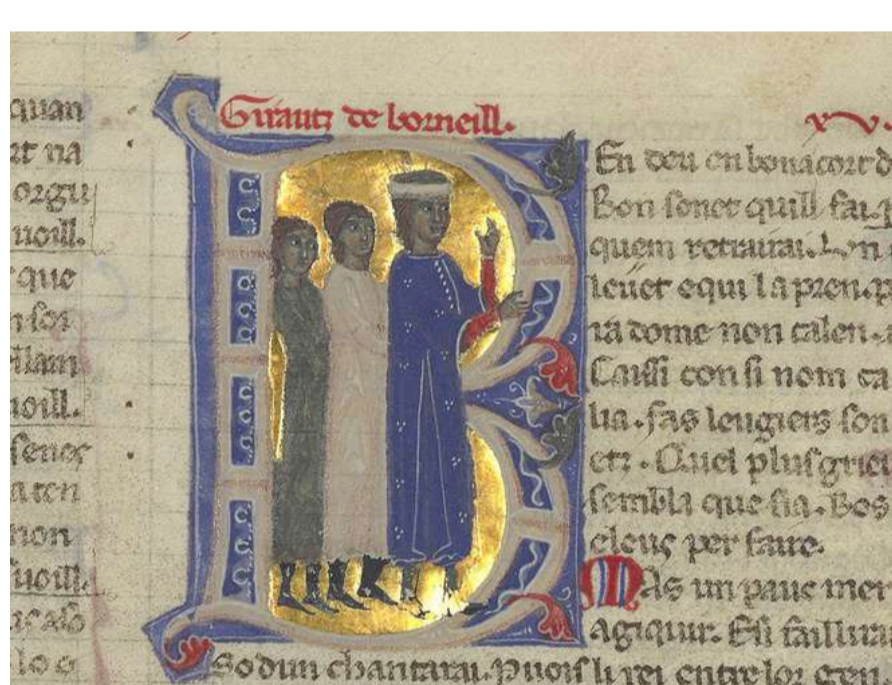 quan
rt na
orgu
uoill.
que
n son
ellam
uoill.
senes
aten
non
suoill.
los
Girautz de borneill.
xv.
B
En deu en bonacort d
Bon sonet quill fai.
quem retrairai. Un
leuet equi la pren.p
na dome non calen.
Caissi con si nom ca
lia. fas leugiers son
etz. Cuel plus griei
sembla que sia. Bos
cleus per faire.
Mas un pauc mer
agiquir. Esi faillira
So dun chantarai. puois li rei entre lor gen